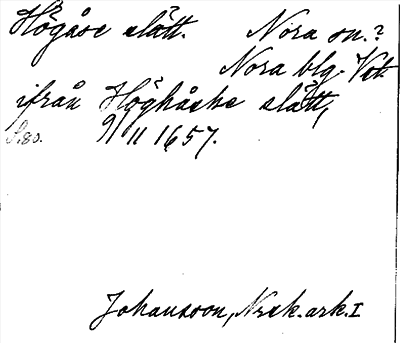 Högåse slått. Nora sn.?
Nora blg. Vst.
ifrån Höghåske slått,
S. 80. 9/11 1657.
Johansson, Nrsk. ark. I